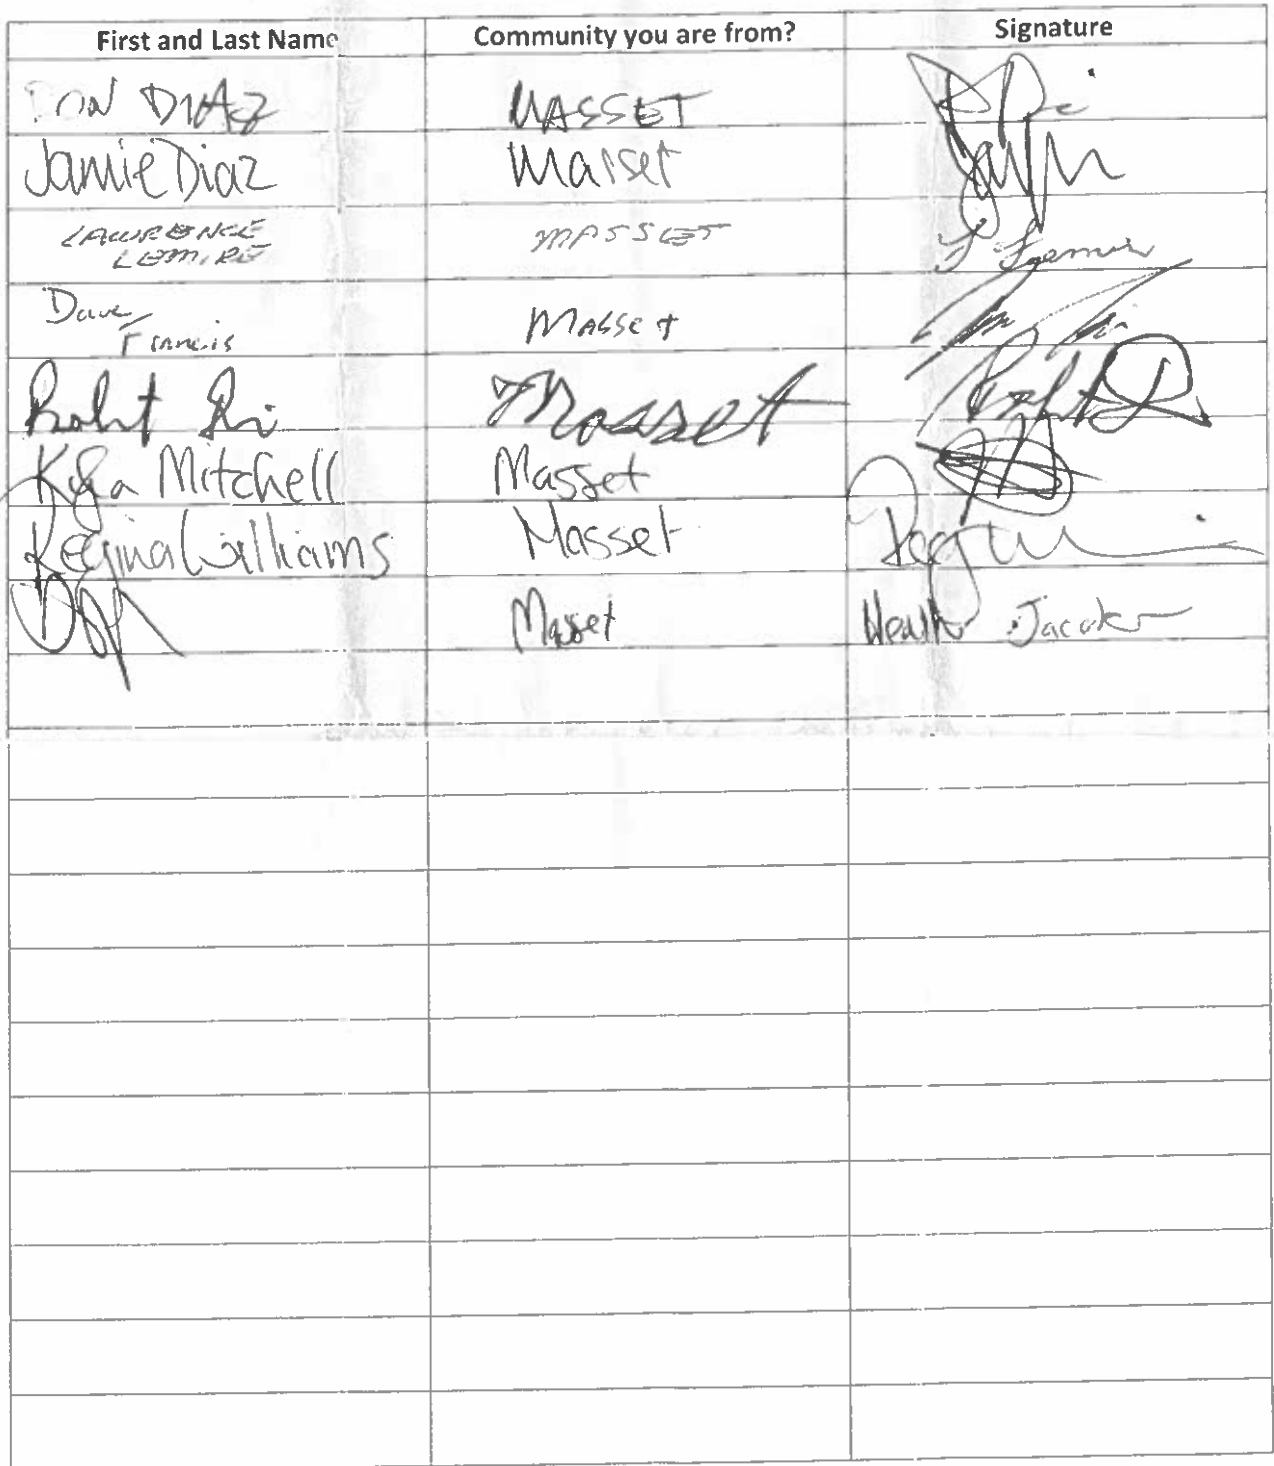 First and Last Name Community you are from? Signature
DON DIAZ MASSET
Jamie Diaz Masset
LAWRENCE
LEMIRE MASSET L Lemire
Dave
Francis Masset
Masset
Mitchell Masset
Regina Williams Masset
Masset Heather